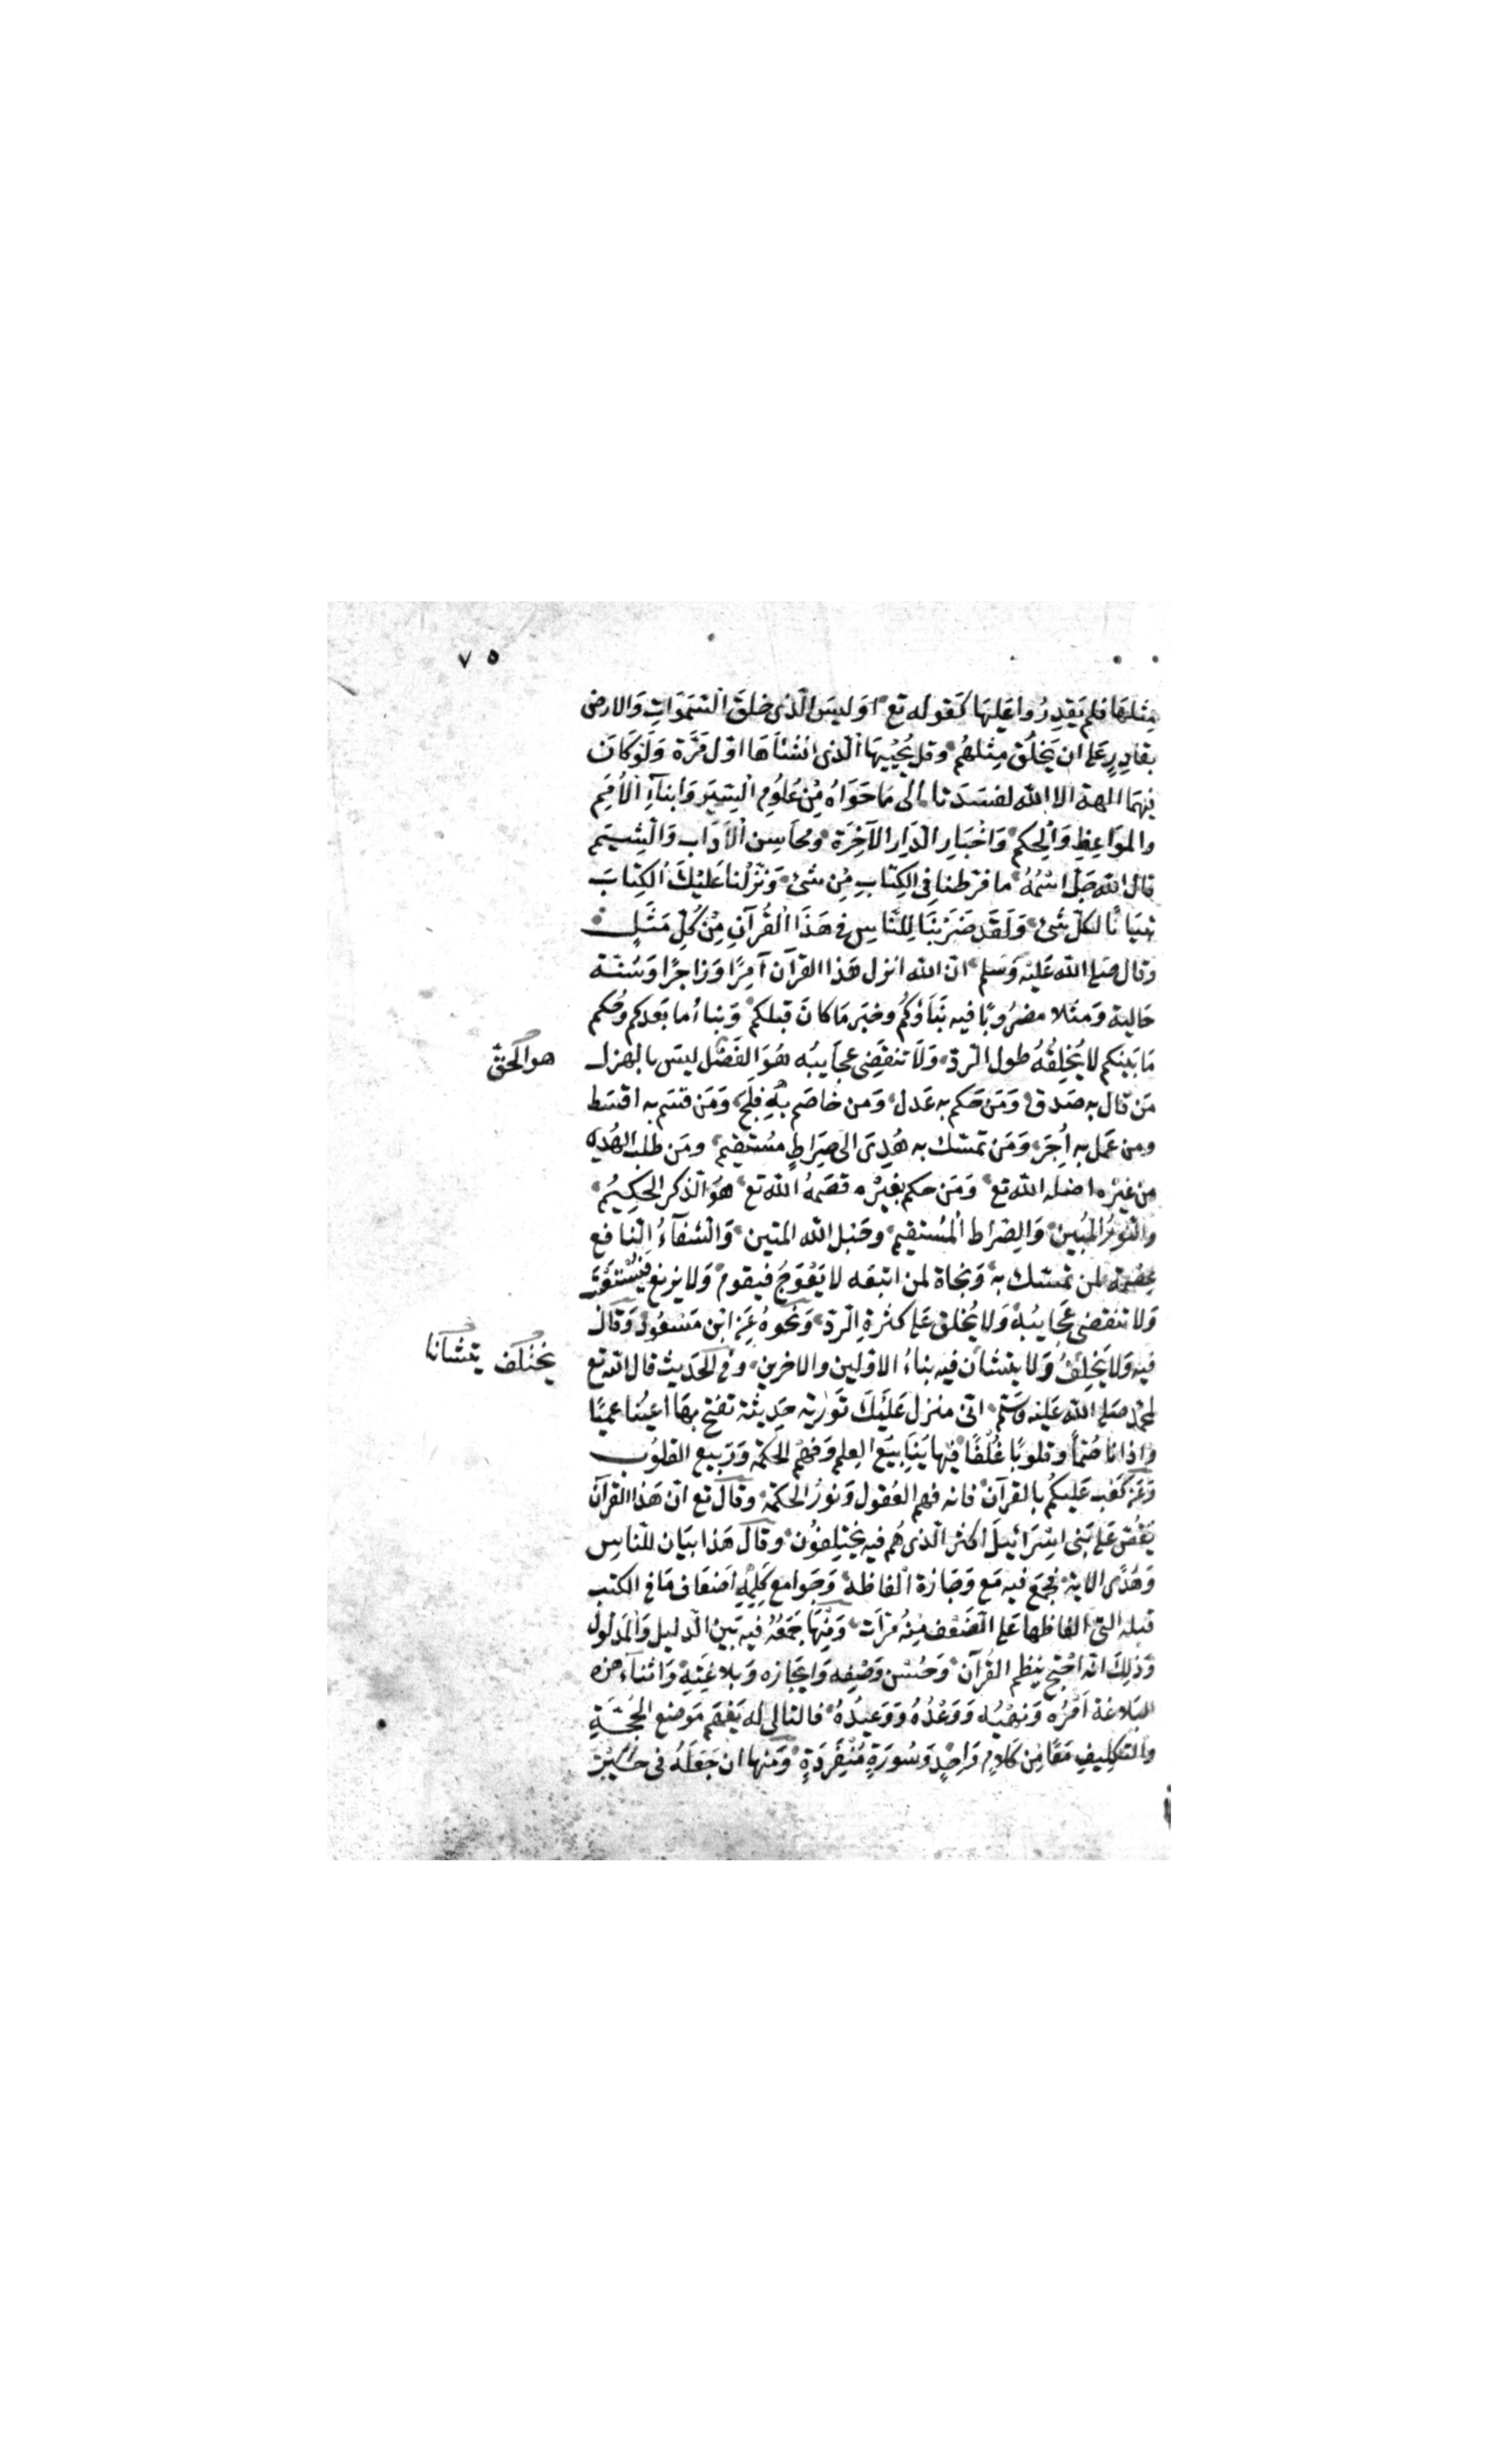 ٧٥
مِثلهَا فلم يَقدِرُوا عَليهَا كَقوله تع اوَليسَ الّذى خلقَ السَّمَوَاتِ وَالارض
بقادِرٍ عَلى ان يَخلُق مِثلهُم وقل يُحْيِيهَا الّذى انشَأهَا اوّل مَرَّة وَلَوْ كَانَ
فيهمَا الهة الا الله لفسَدَتا الى مَا حَوَاهُ مِنْ عُلُومِ السِّيَر وَانبآءِ الأُمَمِ
والموَاعِظِ وَالحِكم وَاخْبَارِ الدَّارِ الآخِرَة ومحَاسِن الأدَاب وَالشِّيَمِ
قال الله جَلّ اسْمُهُ ما فرّطنا فى الكِتابِ مِن شئ وَنزّلنا عَليْكَ الكِتابَ
تبيَانًا لكلّ شئ وَلَقَد ضَرَبْنَا لِلنَّاسِ فى هَذَا القُرآنِ مِنْ كُلِّ مَثَلٍ
وقال صَلى الله عَليْه وَسَلم انّ الله انزل هَذا القرآن آمِرًا وَزاجرًا وَسُنّة
خَالية وَمثلا مضرُوبًا فيه نبَأوُكُم وخبَر مَا كانَ قبلكم وَنبأ ما بَعدكم وحُكم
مَا بَينكم لا يُخلِقُهُ طول الرّد وَلَا تنقضِى عجَايبُه هُوَ الفَصْل ليسَ بالهزل
هو الحقّ
مَن قال به صَدق وَمَن حَكم به عَدل وَمن خاصَم بِهِ فلجَ وَمَن قسَم به اقسَط
ومن عَمل به اُجِرَ وَمَن تمسّك به هُدِىَ الى صِرَاطٍ مُستقيم ومَن طلبَ الهُدى
من غيرْه اضله الله تع وَمَن حكم بغيرْه قصَمهُ الله تع هُوَ الذّكر الحَكِيمُ
وَالنّورُ المُبين وَالصِّرَاط المُستقيم وحَبل الله المتين وَالشفآءُ النّافع
عِصْمَة لمن تمسّك به وَنجاة لمن اتبعَه لا يَعْوَجُّ فيقومَ وَلا يزيغ فيُسْتَعْتَبَ
وَلا تنقضى عجَايبُهُ وَلا يُخلق عَلى كثرةِ الرّد وَنحوهُ عَنِ ابْن مَسْعُودٍ وَقالَ
فيه وَلا يختلِفُ وَلا يتشانّ فيه نباءُ الاوّلين والاخرين وفى الحَديث قال الله تع
يختلف يتشانا
لمحمّد صَلى الله عَليْه وَسَلّم انى منزل عَلَيْكَ تَوْرية حَدِيثة تفتح بهَا اعْيُنا عميًا
وَاذانا صُمًّا وقلوبًا غُلْفًا فيها يَنَابيعُ العِلم وَفهمُ الحكمة وَرَبيع القلوُب
وَعَنْ كَعْب عَليكم بالقرآن فانه فهم العُقول وَنورُ الحكمة وقالَ تع انّ هَذا القرآن
يَقُصّ عَلى بَنى اسْرَائيل اكثر الّذى هُم فيه يَختلِفُون وقال هَذا بيَان للنّاسِ
وَهُدًى الايَة فجُمعَ فيه مَع وَجَازة الفاظه وَجَوامع كَلِمِهِ اضعَاف مَا فى الكتب
قبله التى الفاظها عَلى الضّعْف مِنهُ مَرّات وَمِنْهَا جَمْعُهُ فيه بَيْن الدّليل وَالمَدلول
وَذلِكَ انّه احْتجّ بِنظم القُرآن وَحُسْن وَصْفِه وَايجَازه وَبلاغَتِهِ وَاثناء هذه
البَلاغة امْرُه وَنهْيُه وَوَعْدُهُ وَوَعيدُهُ فالتالى له يَفهم مَوضع الحُجَّةِ
وَالتّكلِيفِ مَعًا مِن كَلامٍ وَاحِدٍ وَسُورَةٍ مُنْفرَدَةٍ وَمنها ان جَعَلهُ فى حَيّز